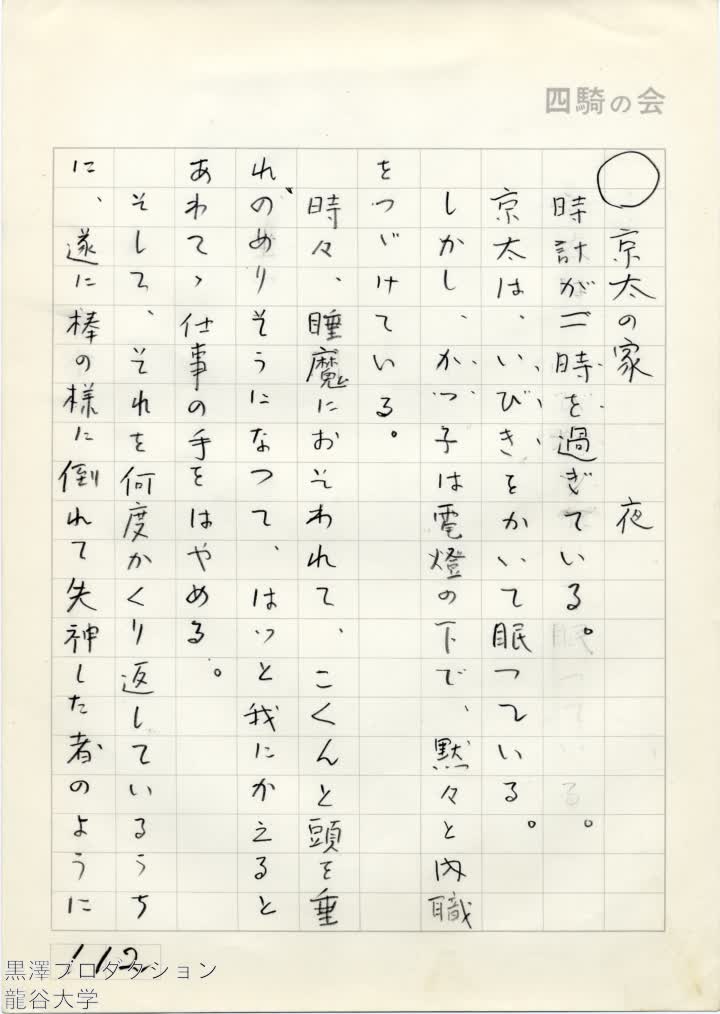 四騎の会
〇　京太の家　　　夜
時計が二時を過ぎている。
京太は、いびきをかいて眠つている。
しかし、かつ子は電燈の下で、黙々と内職
をつゞけている。
時々、睡魔におそわれて、こくんと頭を垂
れ、のめりそうになつて、はっと我にかえると
あわてゝ仕事の手をはやめる。
そして、それを何度かくり返しているうち
に、遂に棒の様に倒れて失神した者のように
112
黒澤プロダクション
龍谷大学